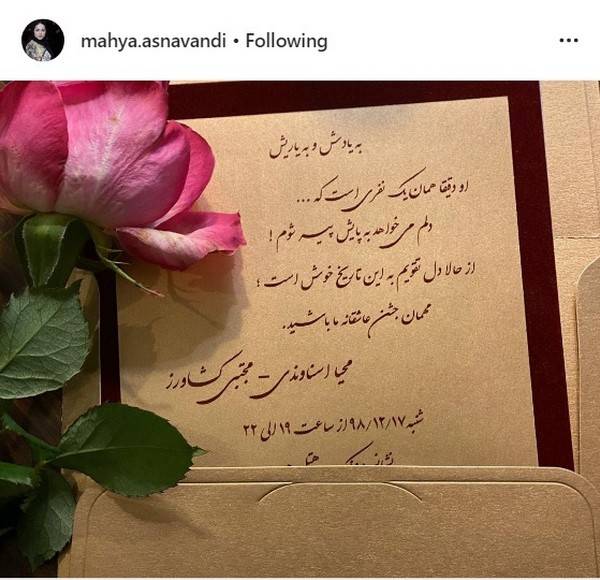 mahya.asnavandi • Following
به یادش و به یاریش
او دقیقا همان یک نفری است که ...
دلم می خواهد به پایش پیر شوم !
از حالا دل تقویم به این تاریخ خوش است ؛
مهمان جشن عاشقانه ما باشید.
محیا اسناوندی - مجتبی کشاورز
شنبه ۹۸/۱۲/۱۷ از ساعت ۱۹ الی ۲۲